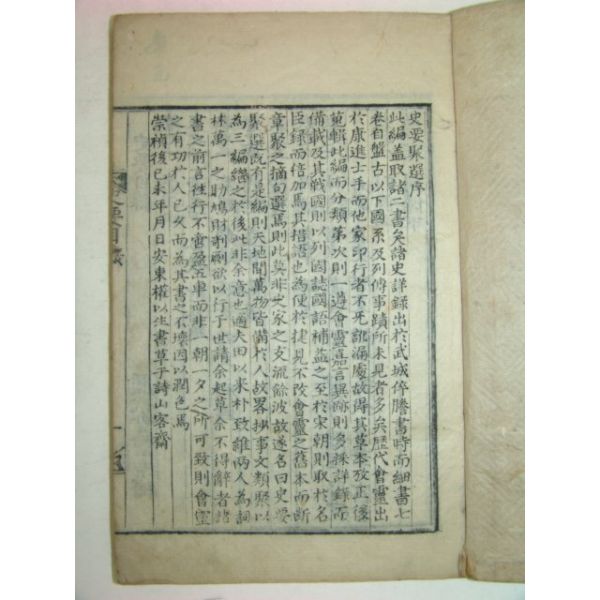 史要聚選序
此編蓋取諸二書矣諸史詳錄出於武城停騰書時而細書七
卷自盤古以下國系及列傳事蹟所未見者多矣歷代會靈出
於康進士手而他家印行者不死訛漏處故得其草本攷正後
蒐輯此編而分類第次則一遵會靈嘉言異跡則多採詳錄而
備載及其戰國則以列國誌國語補益之至於宋朝則取於名
臣錄而倍加焉其措語也為便於捷見不改會靈之舊本而斷
章聚之摘句選焉則此莫非史家之支流餘波故遂名曰史要
聚選旣有是編則天地間萬物皆備於人故畧抄事文類聚以
為三編繼之於後此非余意也適大田以來朴致維兩人為詞
林萬一之助鳩財剞劂欲以行于世請余起草余不得辭者諸
書之前言徃行不啻盈五車而非一朝一夕之所可致則會靈
之有功於人已久而為其書之不壞因以潤色焉
崇禎後己未年月日安東權以生書草于詩山客齋